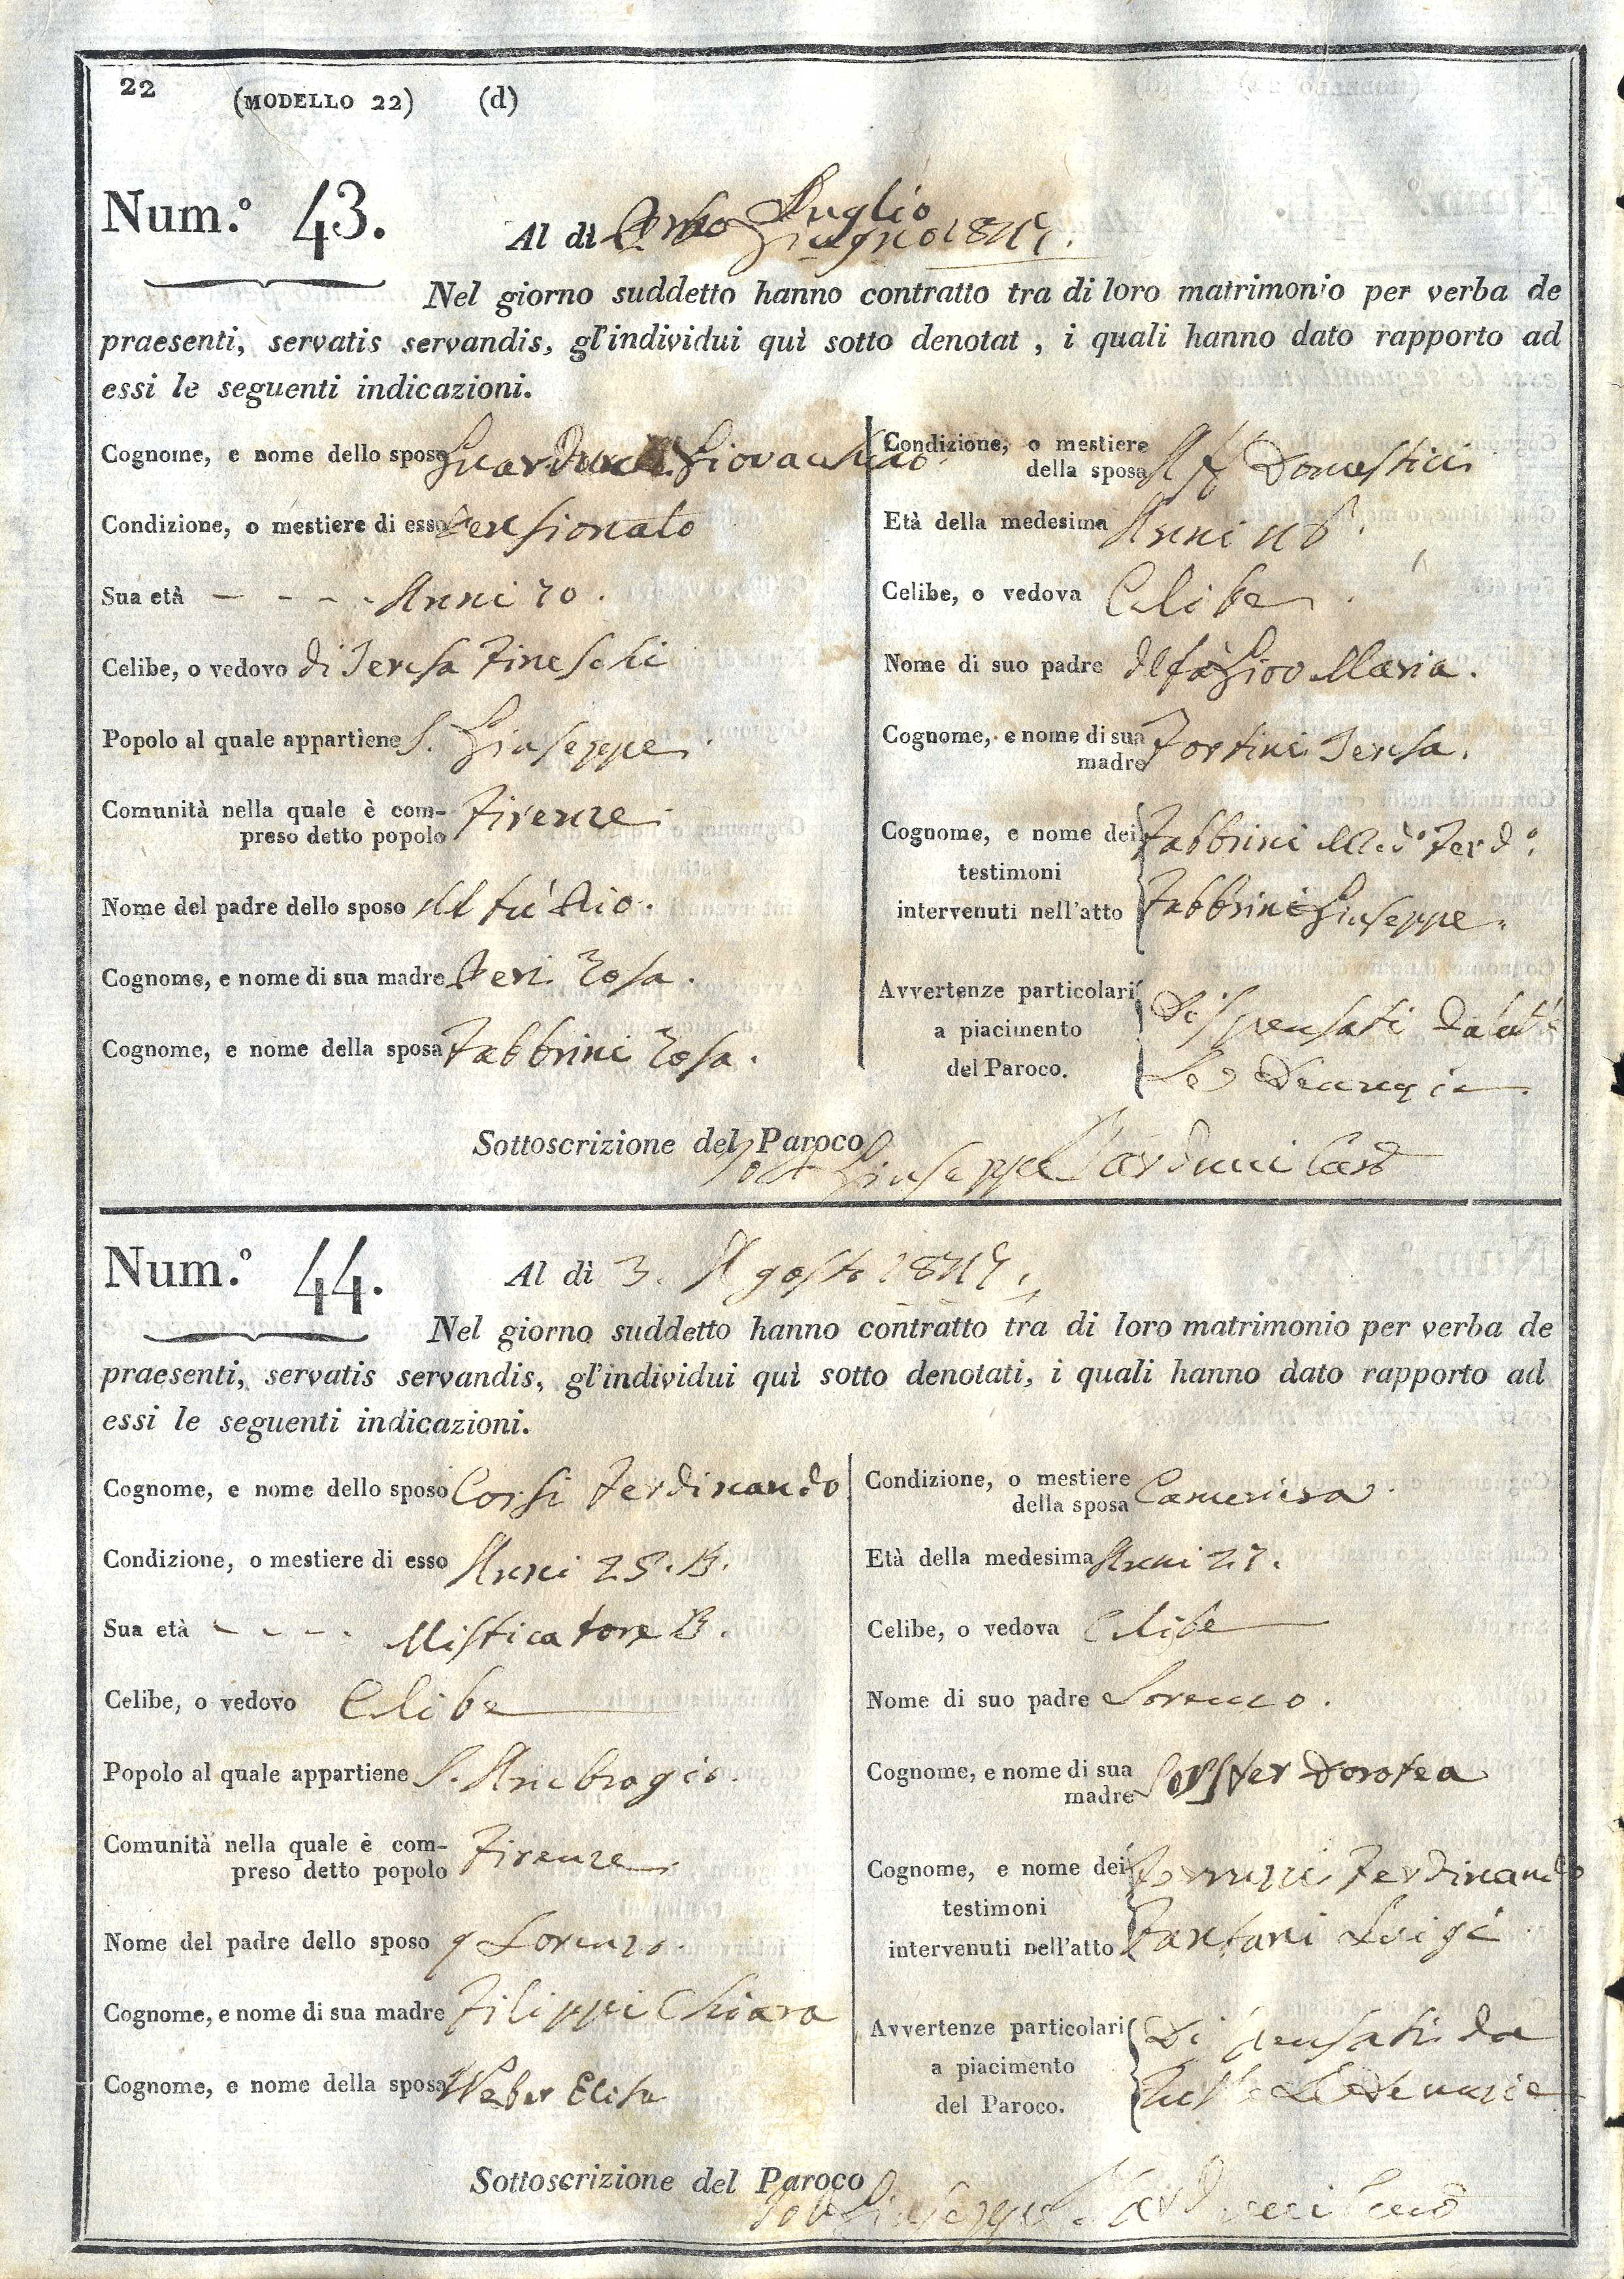 22 (MODELLO 22) (d)
Num.º 43.
Al dì Otto Luglio
Giugno 1844.
Nel giorno suddetto hanno contratto tra di loro matrimonio per verba de
praesenti, servatis servandis, gl'individui quì sotto denotat , i quali hanno dato rapporto ad
essi le seguenti indicazioni.
Cognome, e nome dello sposo Giovacchino
Condizione, o mestiere di esso Pensionato
Sua età - - - - Anni 70.
Celibe, o vedovo di Teresa Fineschi
Popolo al quale appartiene S. Giuseppe.
Comunità nella quale è com-
preso detto popolo Firenze
Nome del padre dello sposo
Cognome, e nome di sua madre Neri Rosa.
Cognome, e nome della sposa Fabbrini Rosa.
Condizione, o mestiere
della sposa Domestici
Età della medesima Anni
Celibe, o vedova Celibe
Nome di suo padre Maria.
Cognome, e nome di sua
madre Fortini Teresa.
Cognome, e nome dei Fabbrini Ferdº.
testimoni
intervenuti nell'atto Fabbrini Giuseppe.
Avvertenze particolari Dispensati
a piacimento
del Paroco. Le Denunzie
Sottoscrizione del Paroco Giuseppe
Num.º 44.
Al dì 3. Agosto 1844.
Nel giorno suddetto hanno contratto tra di loro matrimonio per verba de
praesenti, servatis servandis, gl'individui quì sotto denotati, i quali hanno dato rapporto ad
essi le seguenti indicazioni.
Cognome, e nome dello sposo Corsi Ferdinando
Condizione, o mestiere di esso Anni 25. B.
Sua età - - - - Misticatore B.
Celibe, o vedovo Celibe
Popolo al quale appartiene S. Ambrogio.
Comunità nella quale è com-
preso detto popolo Firenze
Nome del padre dello sposo q Lorenzo.
Cognome, e nome di sua madre Filippi Chiara
Cognome, e nome della sposa Weber Elisa
Condizione, o mestiere
della sposa Cameriera.
Età della medesima Anni 27.
Celibe, o vedova Celibe
Nome di suo padre Lorenzo.
Cognome, e nome di sua
madre Dorotea
Cognome, e nome dei Ferdinando
testimoni
intervenuti nell'atto Luigi
Avvertenze particolari Dispensati da
a piacimento
del Paroco. Tutte Le Denunzie
Sottoscrizione del Paroco Giuseppe